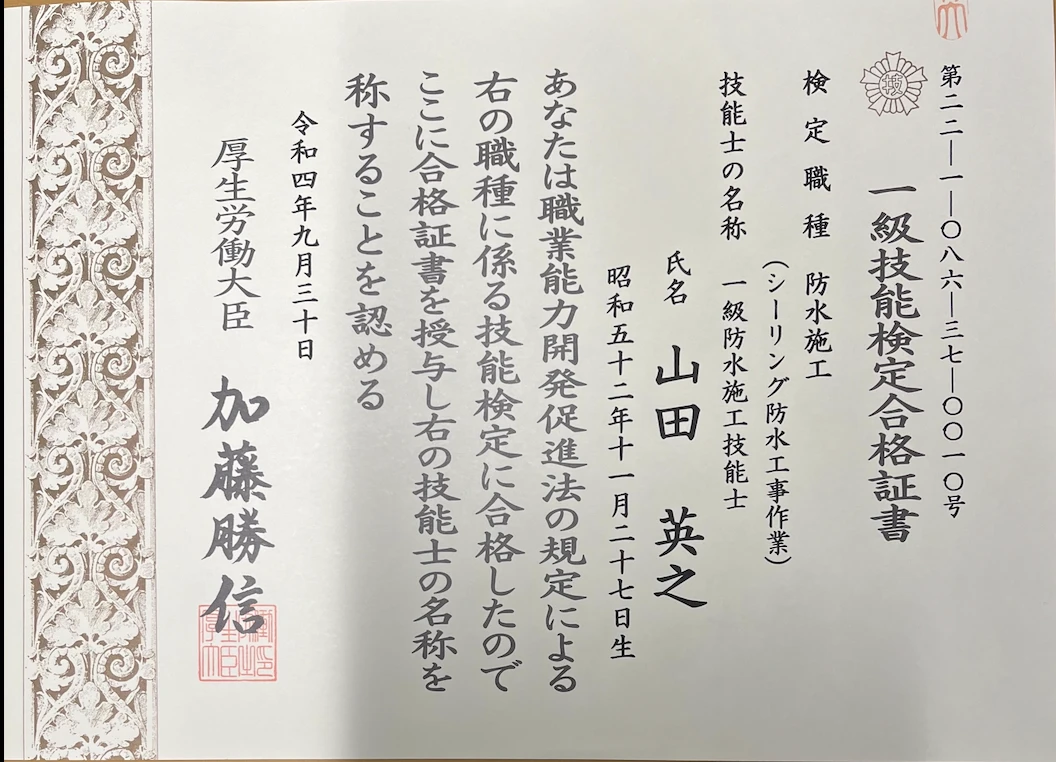 第二二―一―〇八六―三七―〇〇一〇号
技
一級技能検定合格証書
検定職種 防水施工
(シーリング防水工事作業)
技能士の名称 一級防水施工技能士
氏名 山田 英之
昭和五十二年十一月二十七日生
あなたは職業能力開発促進法の規定による
右の職種に係る技能検定に合格したので
ここに合格証書を授与し右の技能士の名称を
称することを認める
令和四年九月三十日
厚生労働大臣 加藤勝信